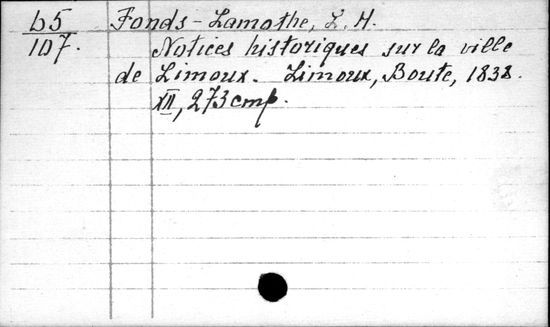 b5 Fonds-Lamothe, L. H.
107. Notices historiques sur la ville
de Limoux. Limoux, Boute, 1838.
XII, 273 cmp.